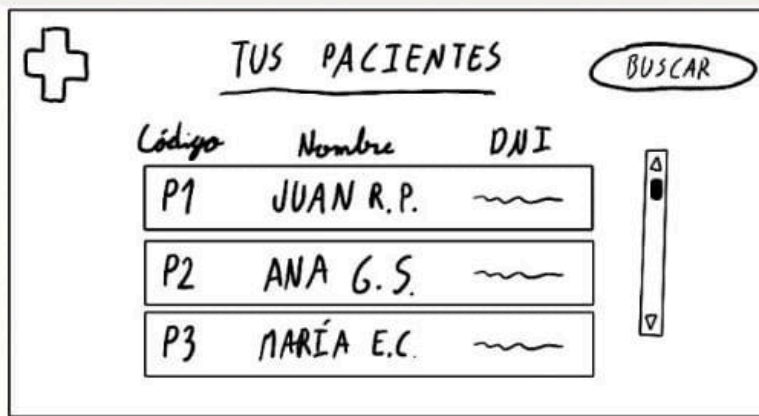 TUS PACIENTES
BUSCAR
Código Nombre DNI
P1 JUAN R.P.
P2 ANA G.S.
P3 MARÍA E.C.